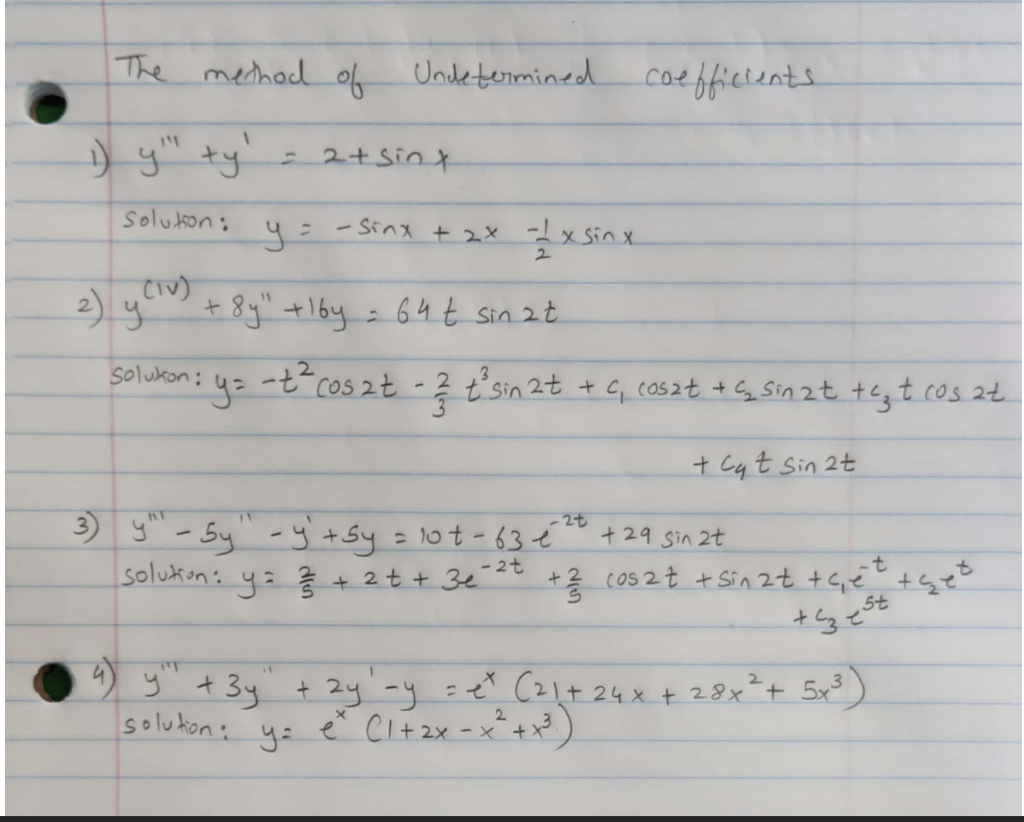 The method of Undetermined coefficients
1) y''' + y' = 2 + sin x
solution: y = - sinx + 2x -1/2 x sin x
2) y^(IV) + 8y'' + 16y = 64 t sin 2t
solution: y = -t² cos 2t - 2/3 t³ sin 2t + c₁ cos2t + c₂ sin 2t + c₃ t cos 2t
+ c₄ t sin 2t
3) y''' - 5y'' - y' + 5y = 10t - 63 e^-2t + 29 sin 2t
solution: y = 2/5 + 2t + 3e^-2t + 2/5 cos2t + sin 2t + c₁e^-t + c₂e^t
+ c₃ e^5t
4) y''' + 3y'' + 2y' - y = e^x (21 + 24x + 28x² + 5x³)
solution: y = e^x (1 + 2x - x² + x³)